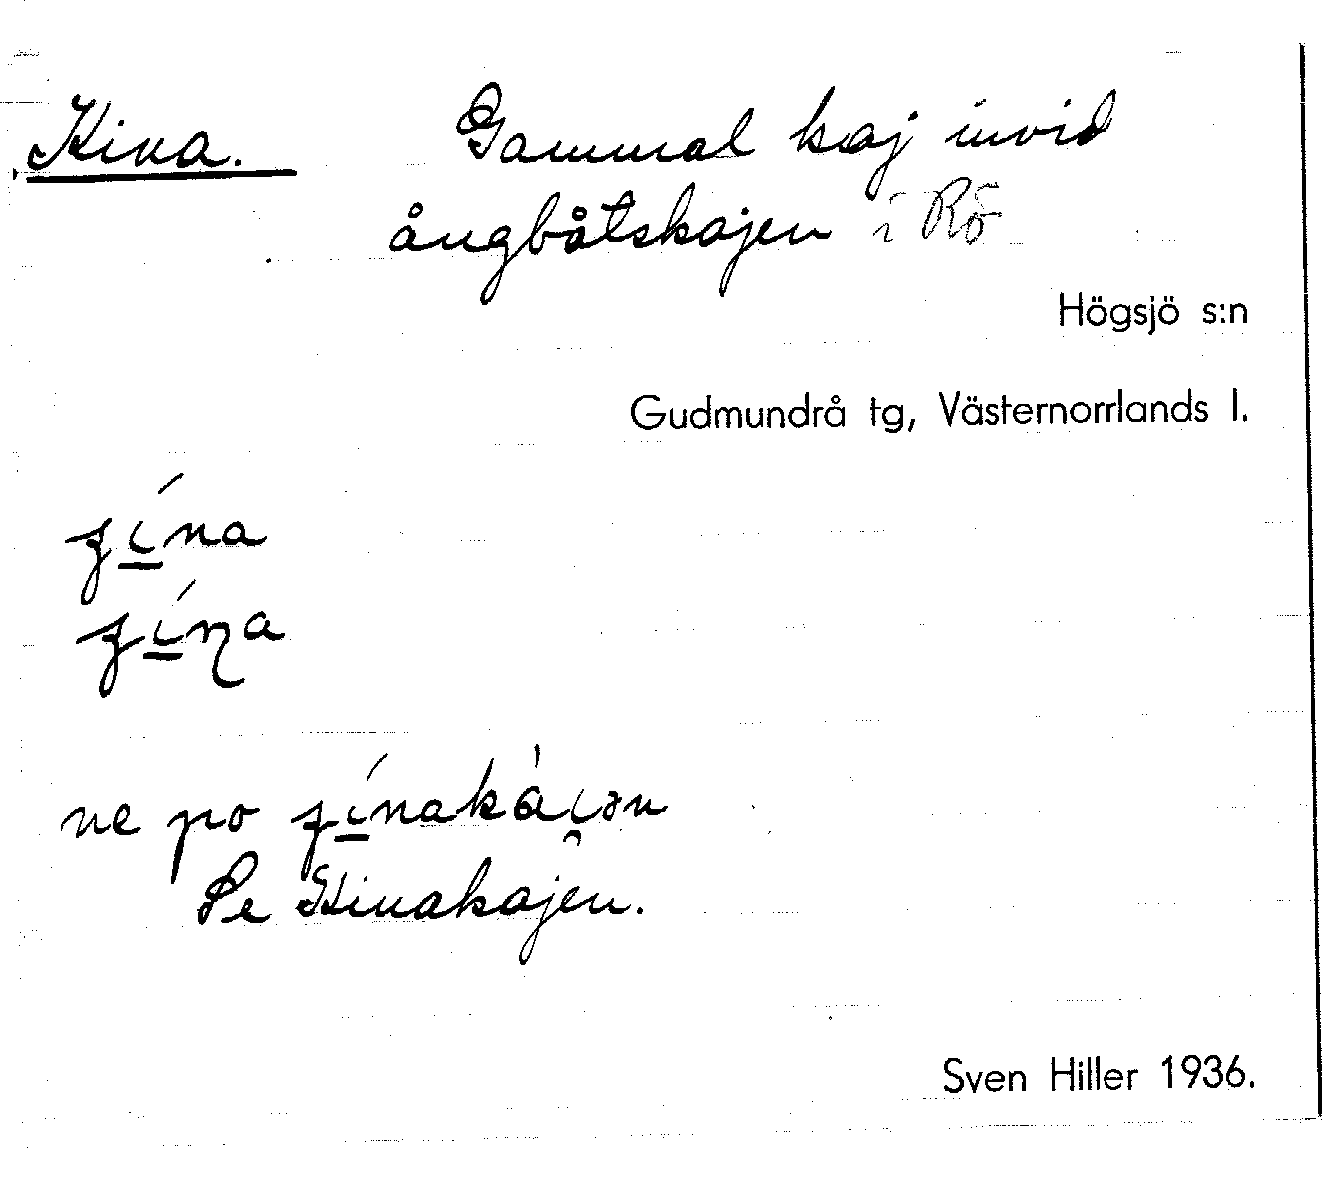 Kina. Gammal kaj invid
ångbåtskajen i Rö
Högsjö s:n
Gudmundrå tg, Västernorrlands l.
ne po
Se Kinakajen.
Sven Hiller 1936.